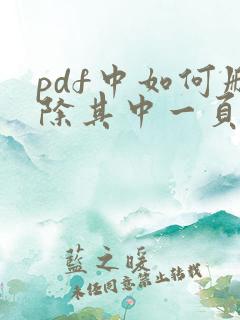 pdf中如何删
除其中一頁
藍之暖
未经同意禁止转载